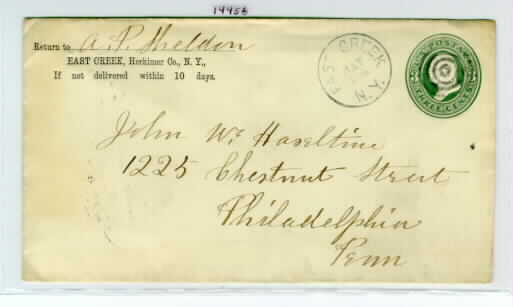 19956
Return to A. P. Sheldon
EAST CREEK, Herkimer Co., N. Y.,
If not delivered within 10 days.
EAST CREEK
N.Y.
U.S. POSTAGE
THREE CENTS
John W. Haseltine
1225 Chestnut Street
Philadelphia
Penn